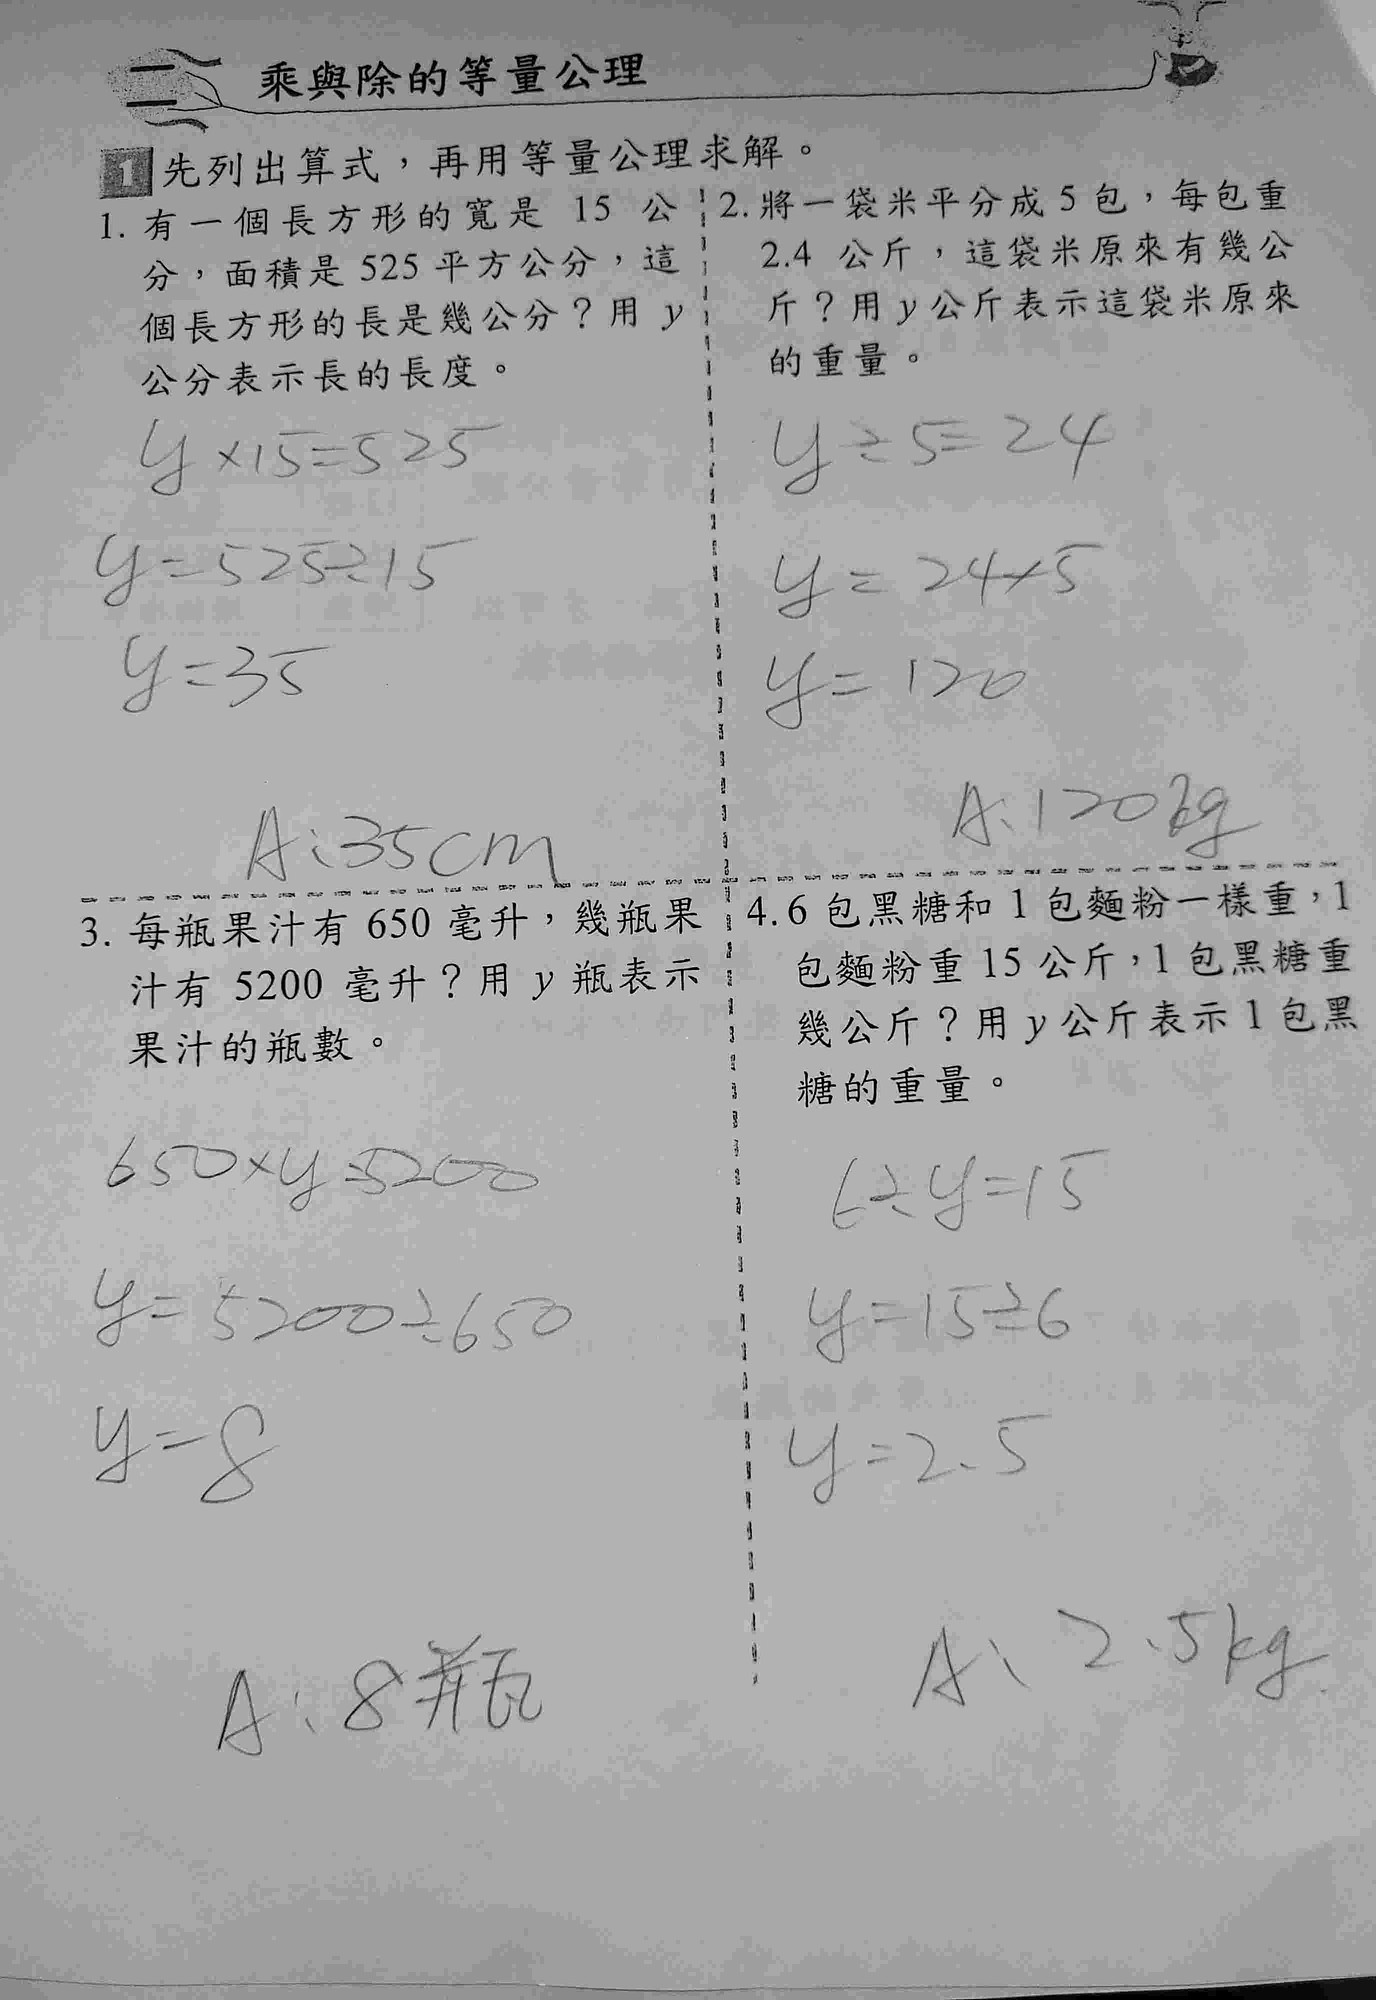 二 乘與除的等量公理
1 先列出算式，再用等量公理求解。
1. 有一個長方形的寬是 15 公
分，面積是 525 平方公分，這
個長方形的長是幾公分？用 y
公分表示長的長度。
y×15=525
y=525÷15
y=35
A:35cm
2. 將一袋米平分成 5 包，每包重
2.4 公斤，這袋米原來有幾公
斤？用 y 公斤表示這袋米原來
的重量。
y÷5=24
y=24×5
y=120
A:120kg
3. 每瓶果汁有 650 毫升，幾瓶果
汁有 5200 毫升？用 y 瓶表示
果汁的瓶數。
650×y=5200
y=5200÷650
y=8
A:8瓶
4. 6 包黑糖和 1 包麵粉一樣重，1
包麵粉重 15 公斤，1 包黑糖重
幾公斤？用 y 公斤表示 1 包黑
糖的重量。
6÷y=15
y=15÷6
y=2.5
A:2.5kg